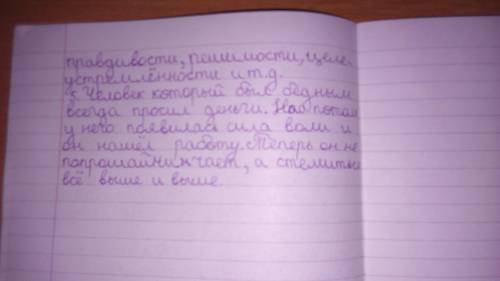 правдивости, решимости, целе-
устремлённости и т.д.
5. Человек который был бедным
всегда просил деньги. Но потом
у него появилась сила воли и
он нашёл работу. Теперь он не
попрошайничает, а стемиться
всё выше и выше.